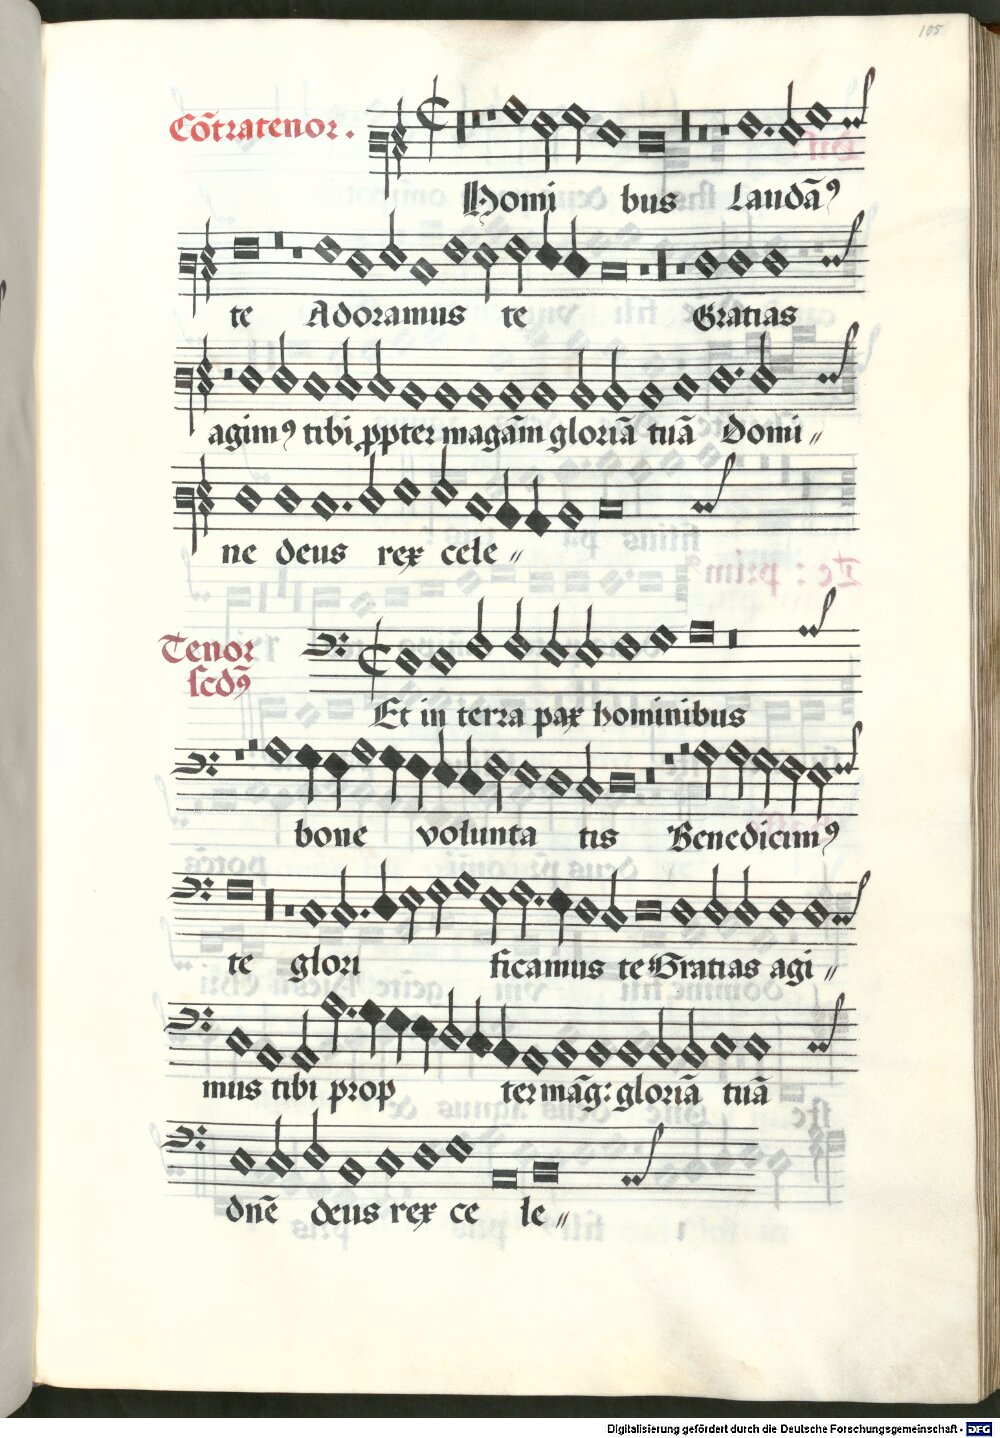 105
Cōtratenor.
Homi bus Laudāꝰ
te Adoramus te Gratias
agimꝰ tibi ꝓpter magām gloriā tuā Domi〃
ne deus rex cele〃
Tenor
scdꝰ
Et in terra pax hominibus
bone volunta tis Benedicimꝰ
te glori ficamus te Gratias agi〃
mus tibi prop ter māg: gloriā tuā
dn̄e deus rex ce le〃
Digitalisierung gefördert durch die Deutsche Forschungsgemeinschaft - DFG